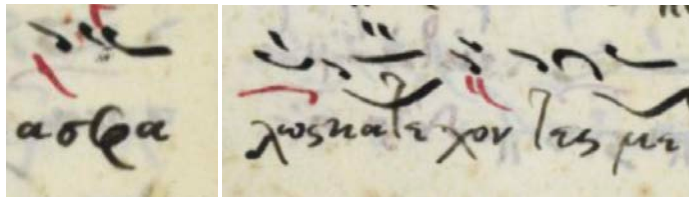 ασφα
λως κατεχοντες με